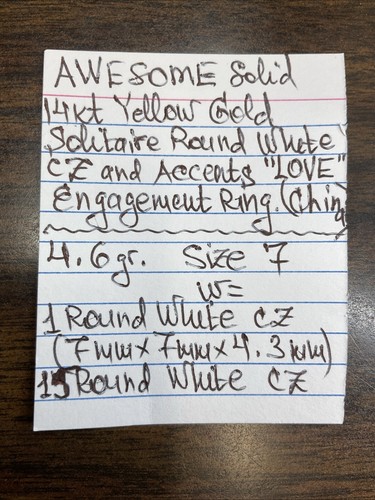 AWESOME Solid
14kt Yellow Gold
Solitaire Round White
CZ and Accents "LOVE"
Engagement Ring. (China
4.6gr. Size 7
W=
1 Round White CZ
(7mm x 7mm x 4.3mm)
15 Round White CZ